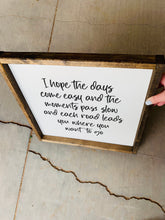 I hope the days
come easy and the
moments pass slow
and each road leads
you where you
want to go